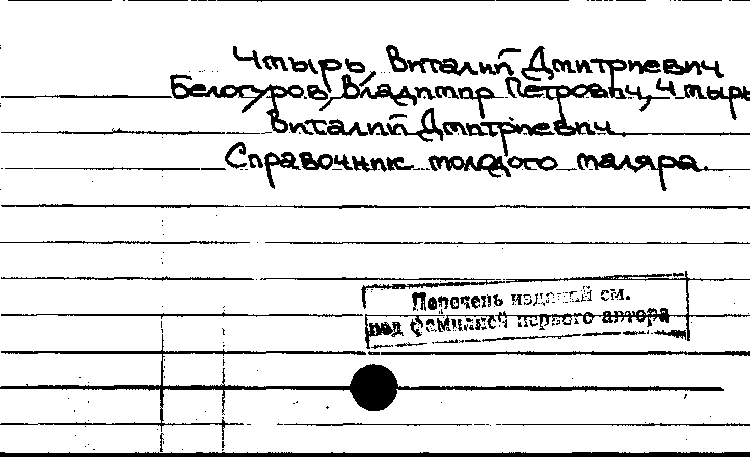 Чтырь, Виталий Дмитриевич
Белогуров, Владимир Петрович, Чтырь
Виталий Дмитриевич.
Справочник молодого маляра.
Перечень изданий см.
под фамилией первого автора